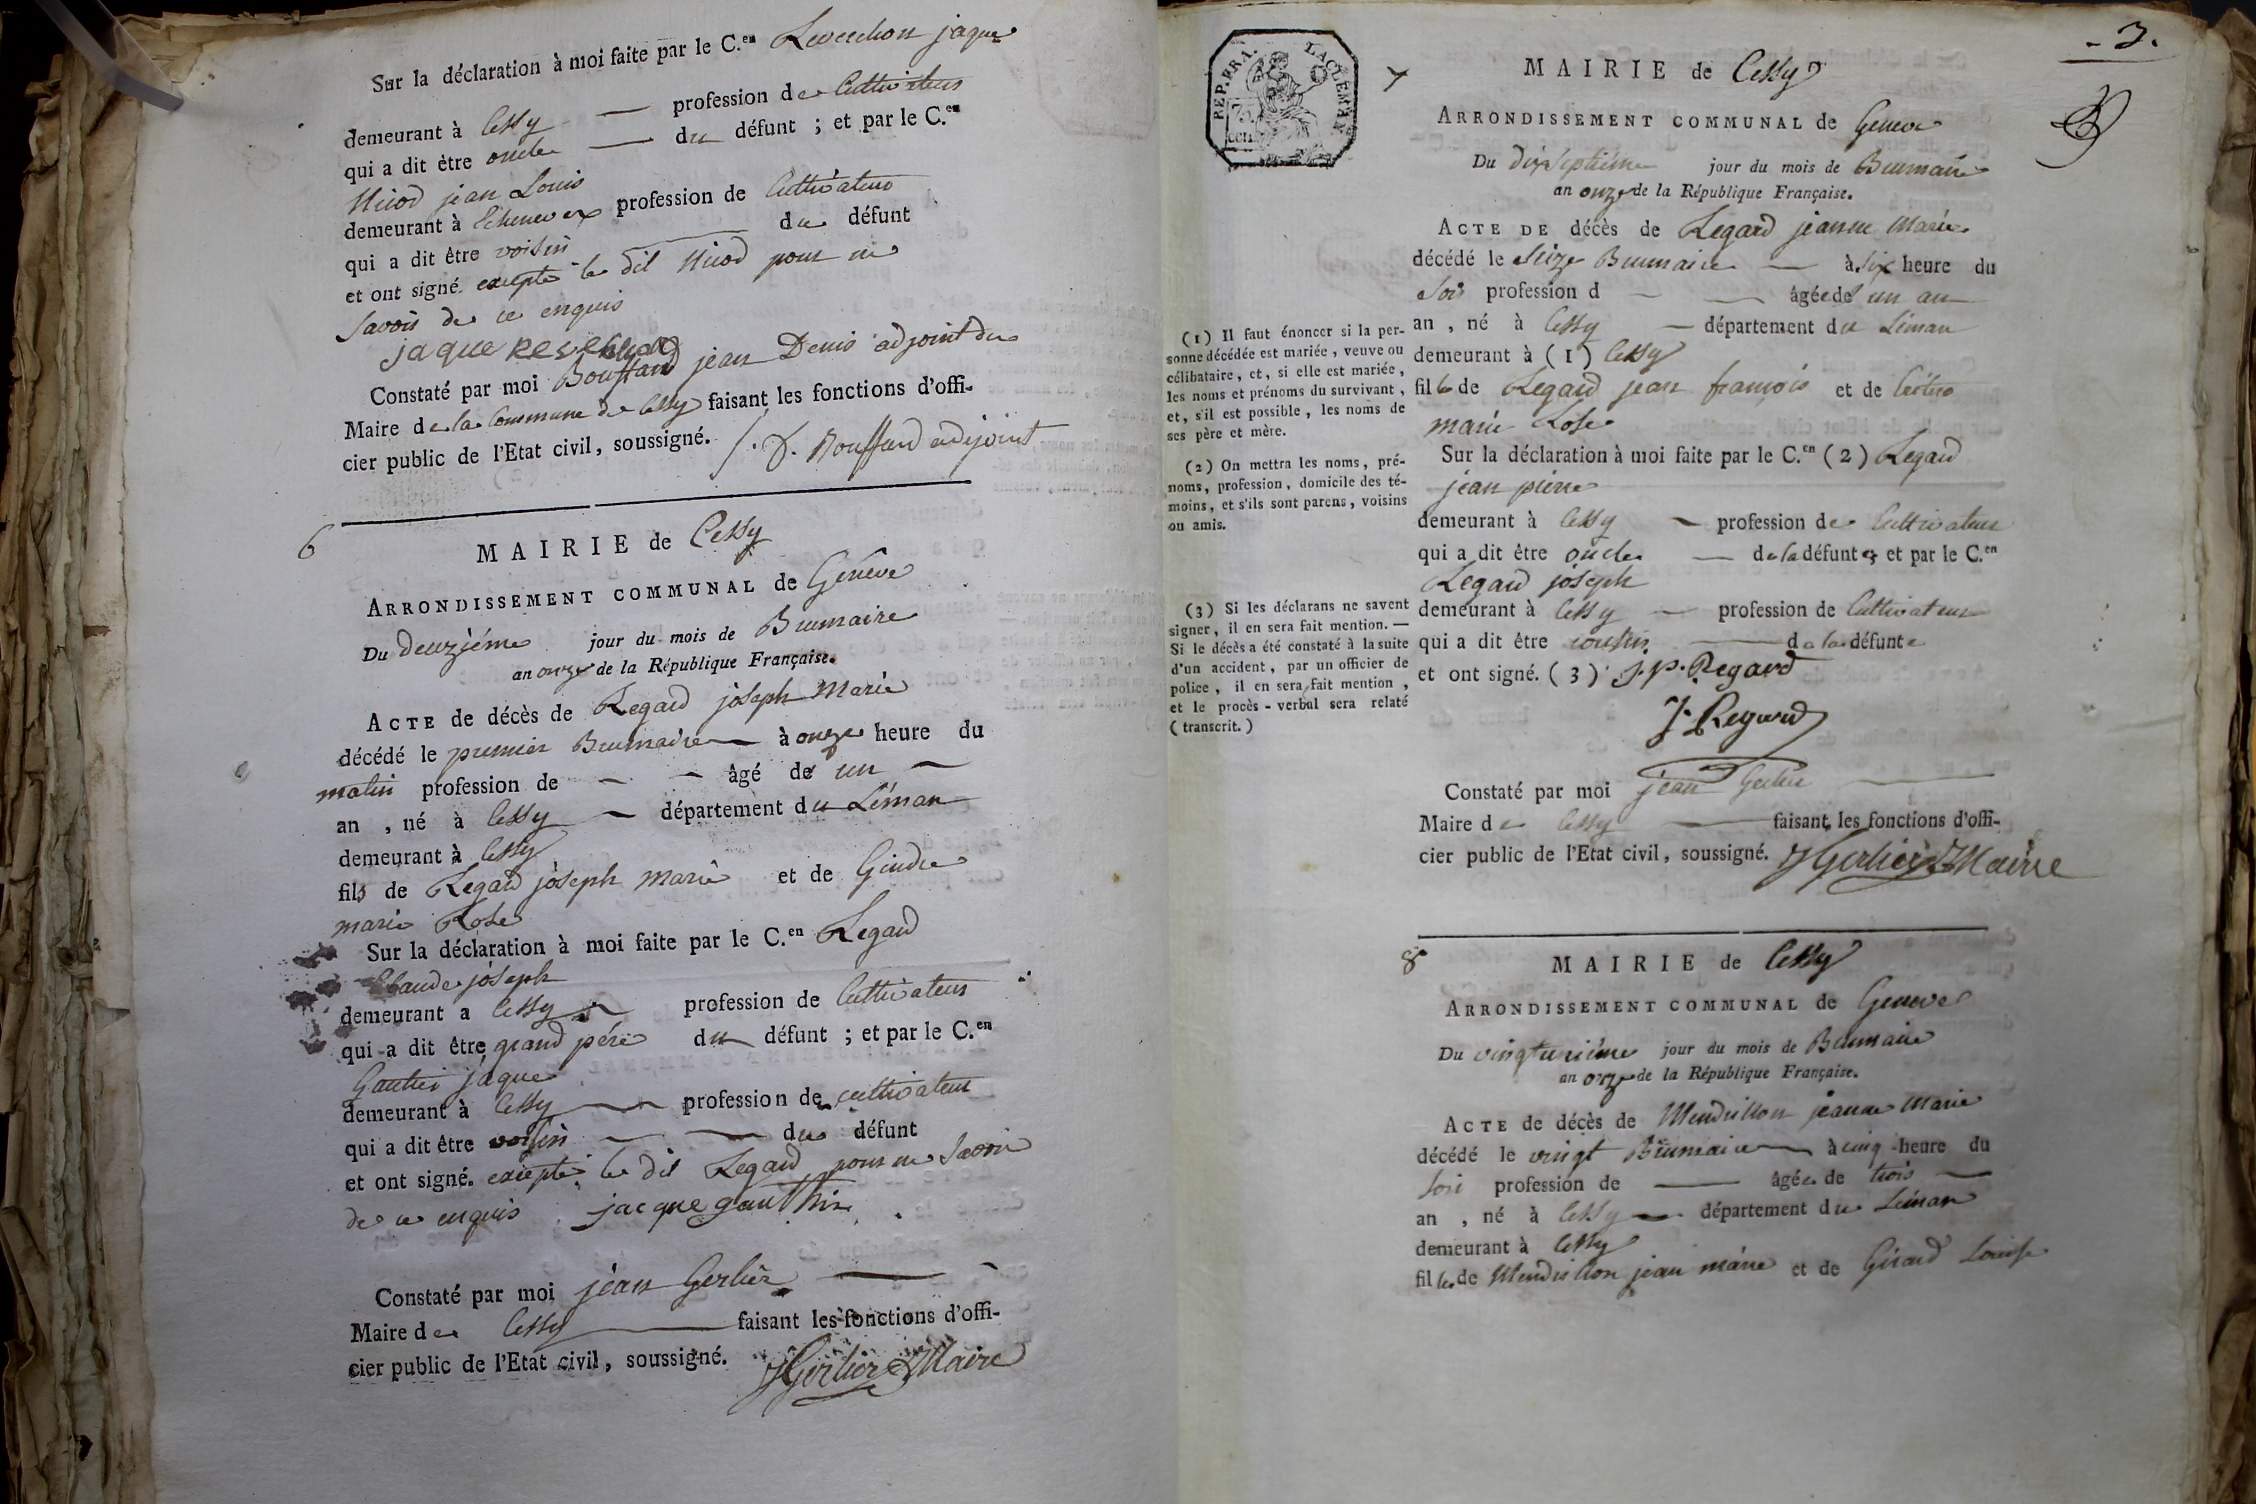 Sur la déclaration à moi faite par le C.en Reverchon jaque
demeurant à Cessy profession de Cultivateur
qui a dit être oncle du défunt ; et par le C.en
Nicod jean Louis
demeurant à Echenevex profession de Cultivateur
qui a dit être voisin du défunt
et ont signé. excepté le dit Nicod pour ne
savoir de ce enquis
jaque Reverchon
Constaté par moi Bouffard jean Denis adjoint du
Maire de la Commune de Cessy faisant les fonctions d'offi-
cier public de l'Etat civil, soussigné. J. D. Bouffard adjoint
6
MAIRIE de Cessy
ARRONDISSEMENT COMMUNAL de Genève
Du deuzième jour du mois de Brumaire
an onze de la République Française.
ACTE de décès de Regard joseph Marie
décédé le premier Brumaire à onze heure du
matin profession de âgé de un
an , né à Cessy département du Léman
demeurant à Cessy
fils de Regard joseph marie et de Gindre
marie Rose
Sur la déclaration à moi faite par le C.en Regard
Claude joseph
demeurant a Cessy profession de Cultivateur
qui a dit être grand père du défunt ; et par le C.en
Gautier jaque
demeurant à Cessy profession de cultivateur
qui a dit être voisin du défunt
et ont signé. excepté le dit Regard pour ne Savoir
de ce enquis jacque gauthir
Constaté par moi jean Gerlier
Maire de Cessy faisant les fonctions d'offi-
cier public de l'Etat civil, soussigné. J Gerlier Maire
- 3.
REP. FRA. LA CLÉMEN
75 cen
7
MAIRIE de Cessy
ARRONDISSEMENT COMMUNAL de Geneve
Du dixseptième jour du mois de Brumaire
an onze de la République Française.
ACTE DE décès de Regard jeanne Marie
décédé le seize Brumaire à six heure du
soir profession d âgée de un an
an , né à Cessy département du Léman
demeurant à (1) Cessy
fille de Regard jean françois et de
marie Rose
Sur la déclaration à moi faite par le C.en (2) Regard
jean pierre
demeurant à Cessy profession de Cultivateur
qui a dit être oncle de la défunte et par le C.en
Regard joseph
demeurant à Cessy profession de Cultivateur
qui a dit être cousin de la défunte
et ont signé. (3) j. p. Regard
J. Regard
Constaté par moi jean Gerlier
Maire de Cessy faisant les fonctions d'offi-
cier public de l'Etat civil, soussigné. J Gerlier Maire
(1) Il faut énoncer si la per-
sonne décédée est mariée, veuve ou
célibataire, et, si elle est mariée,
les noms et prénoms du survivant,
et, s'il est possible, les noms de
ses père et mère.
(2) On mettra les noms, pré-
noms, profession, domicile des té-
moins, et s'ils sont parens, voisins
ou amis.
(3) Si les déclarans ne savent
signer, il en sera fait mention. —
Si le décès a été constaté à la suite
d'un accident, par un officier de
police, il en sera fait mention,
et le procès-verbal sera relaté
(transcrit.)
8
MAIRIE de Cessy
ARRONDISSEMENT COMMUNAL de Geneve
Du vingtunième jour du mois de Brumaire
an onze de la République Française.
ACTE de décès de Mendrillon jeanne Marie
décédé le vingt Brumaire à cinq heure du
soir profession de âgée de trois
an , né à Cessy département du Léman
demeurant à Cessy
fille de Mendrillon jean marie et de Girard Louise